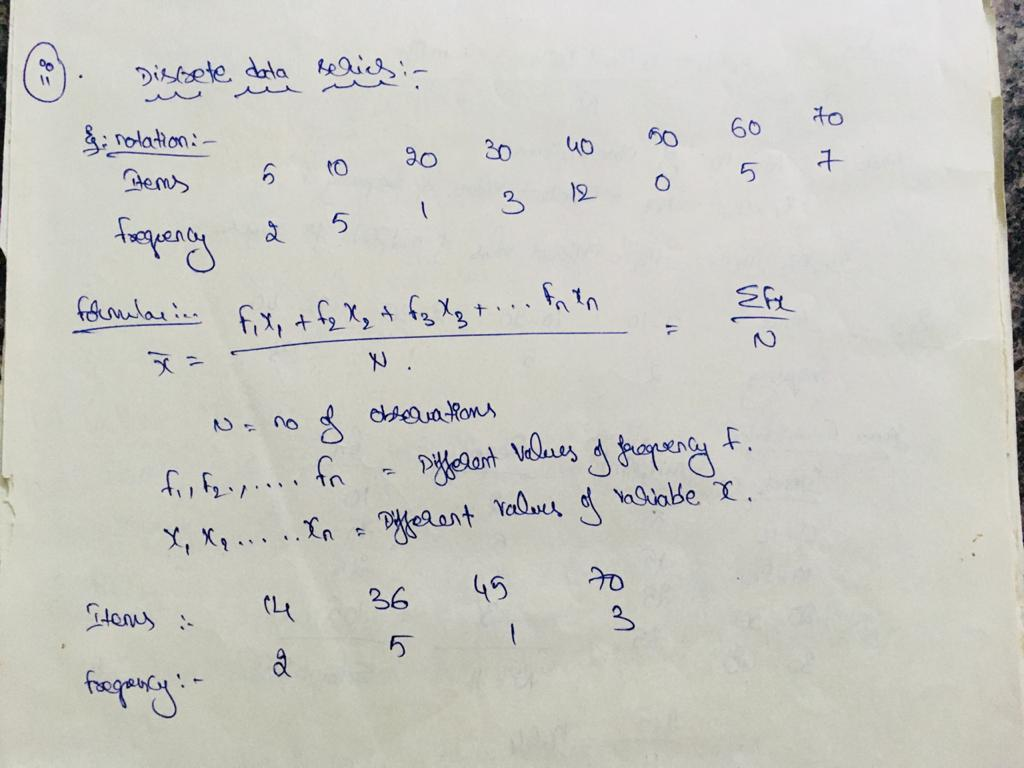 ii . Discrete data series:-
Eg: notation:-
Items 5 10 20 30 40 50 60 70
frequency 2 5 1 3 12 0 5 7
formula:..
x̄ = f₁x₁ + f₂x₂ + f₃x₃ + ... fₙxₙ / N. = Σfx / N
N = no of observations
f₁, f₂, .... fₙ = Different values of frequency f.
x₁ x₂ ..... xₙ = Different values of variable x.
Items :- 14 36 45 70
frequency :- 2 5 1 3